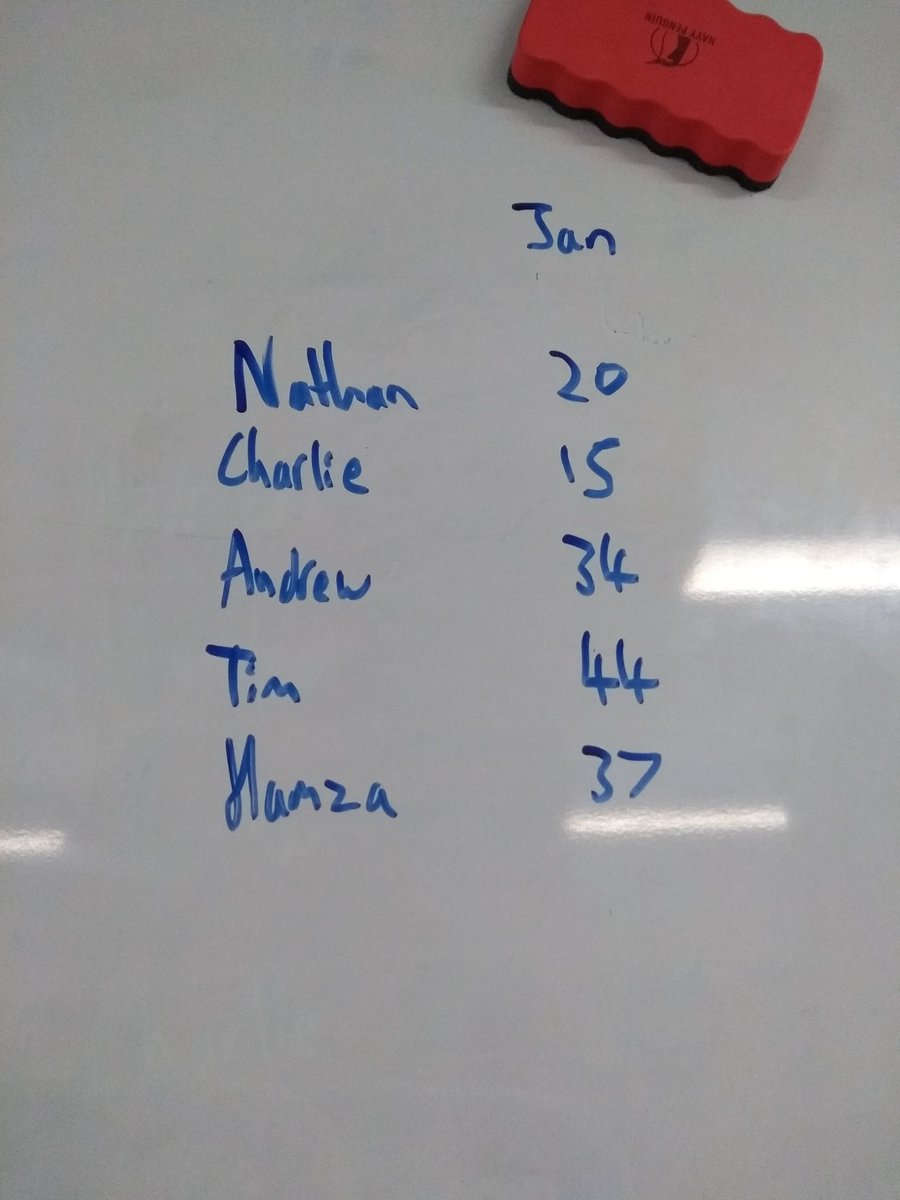 NAVY PENGUIN
Jan
Nathan 20
Charlie 15
Andrew 34
Tim 44
Hamza 37